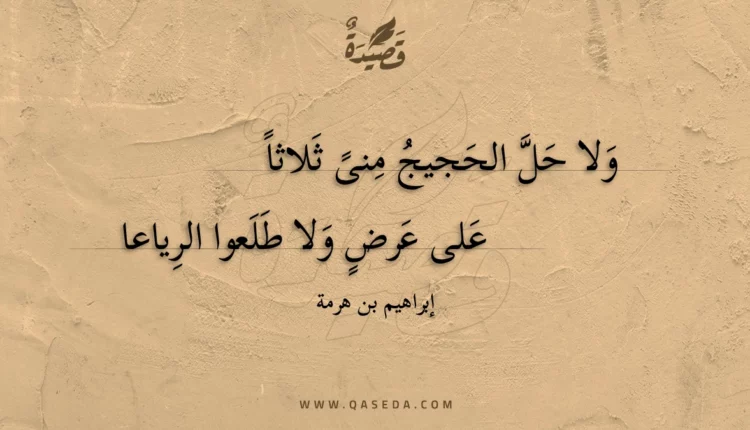 قَصِيدَةٌ
وَلا حَلَّ الحَجيجُ مِنىً ثَلاثاً
عَلى عَرَضٍ وَلا طَلَعوا الرِياعا
إبراهيم بن هرمة
WWW.QASEDA.COM